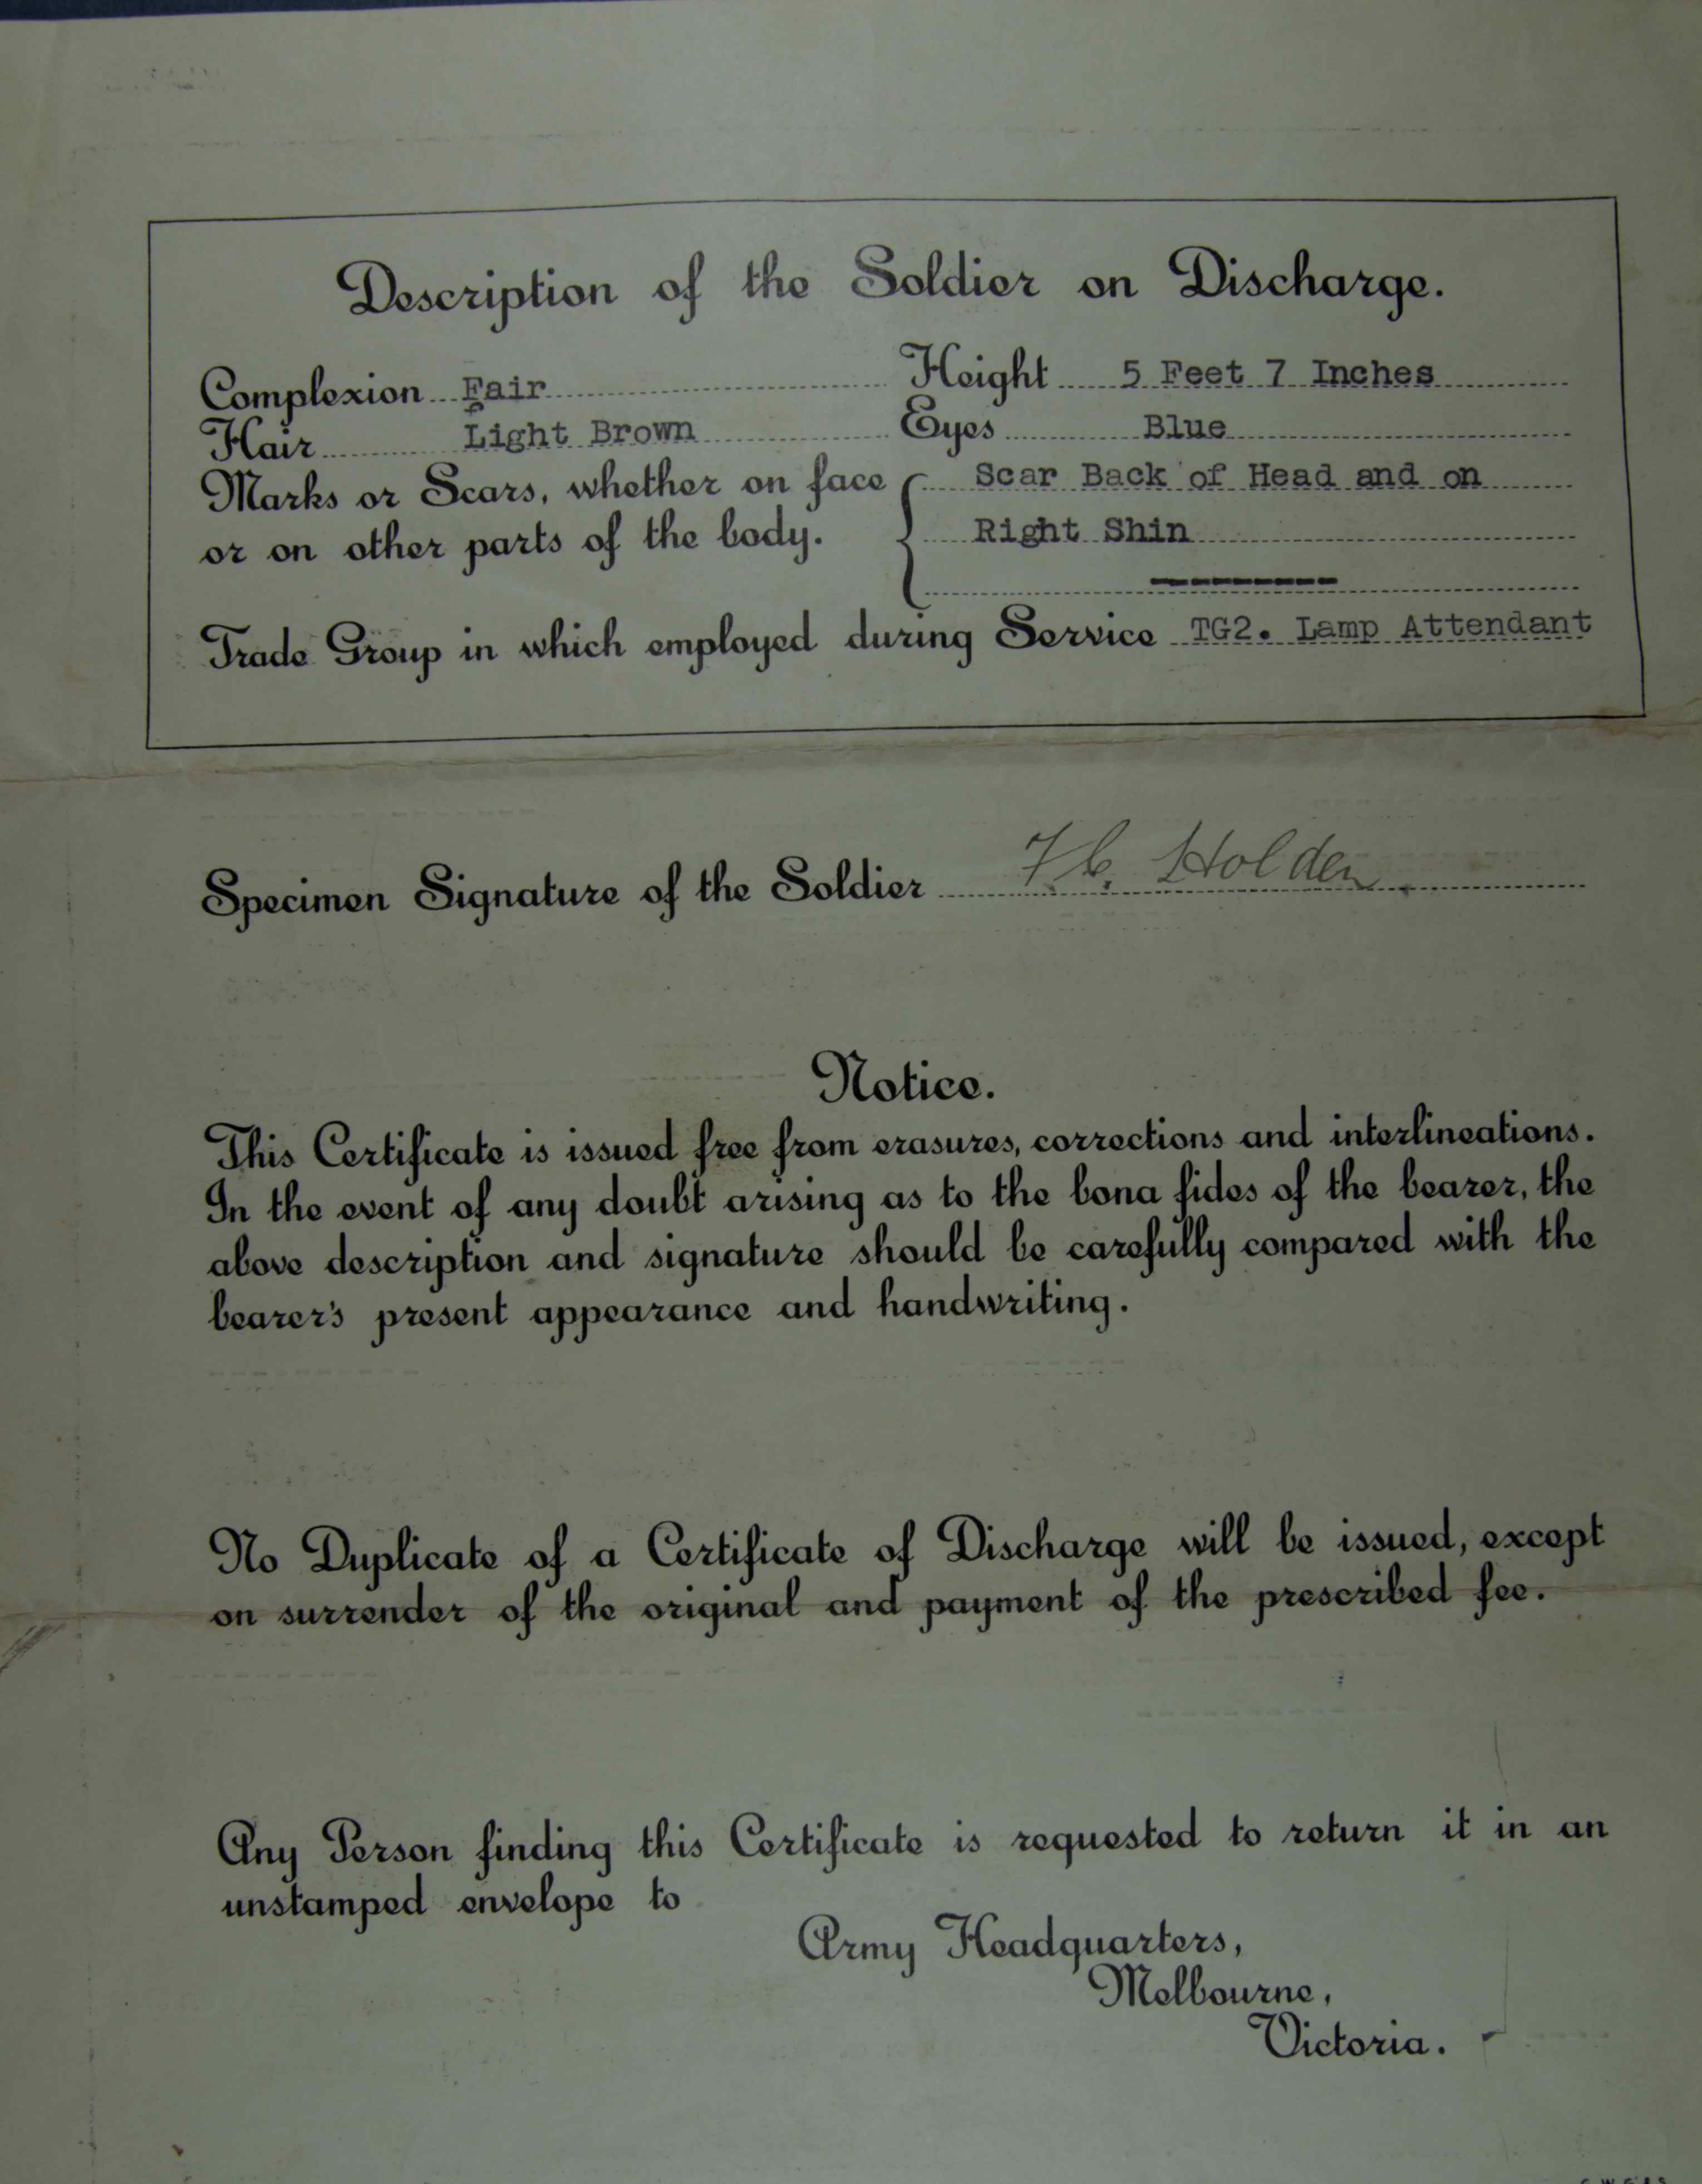 Description of the Soldier on Discharge.
Complexion Fair Height 5 Feet 7 Inches
Hair Light Brown Eyes Blue
Marks or Scars, whether on face Scar Back of Head and on
or on other parts of the body. Right Shin
Trade Group in which employed during Service TG2. Lamp Attendant
Specimen Signature of the Soldier Holden
Notice.
This Certificate is issued free from erasures, corrections and interlineations.
In the event of any doubt arising as to the bona fides of the bearer, the
above description and signature should be carefully compared with the
bearer's present appearance and handwriting.
No Duplicate of a Certificate of Discharge will be issued, except
on surrender of the original and payment of the prescribed fee.
Any Person finding this Certificate is requested to return it in an
unstamped envelope to
Army Headquarters,
Melbourne,
Victoria.